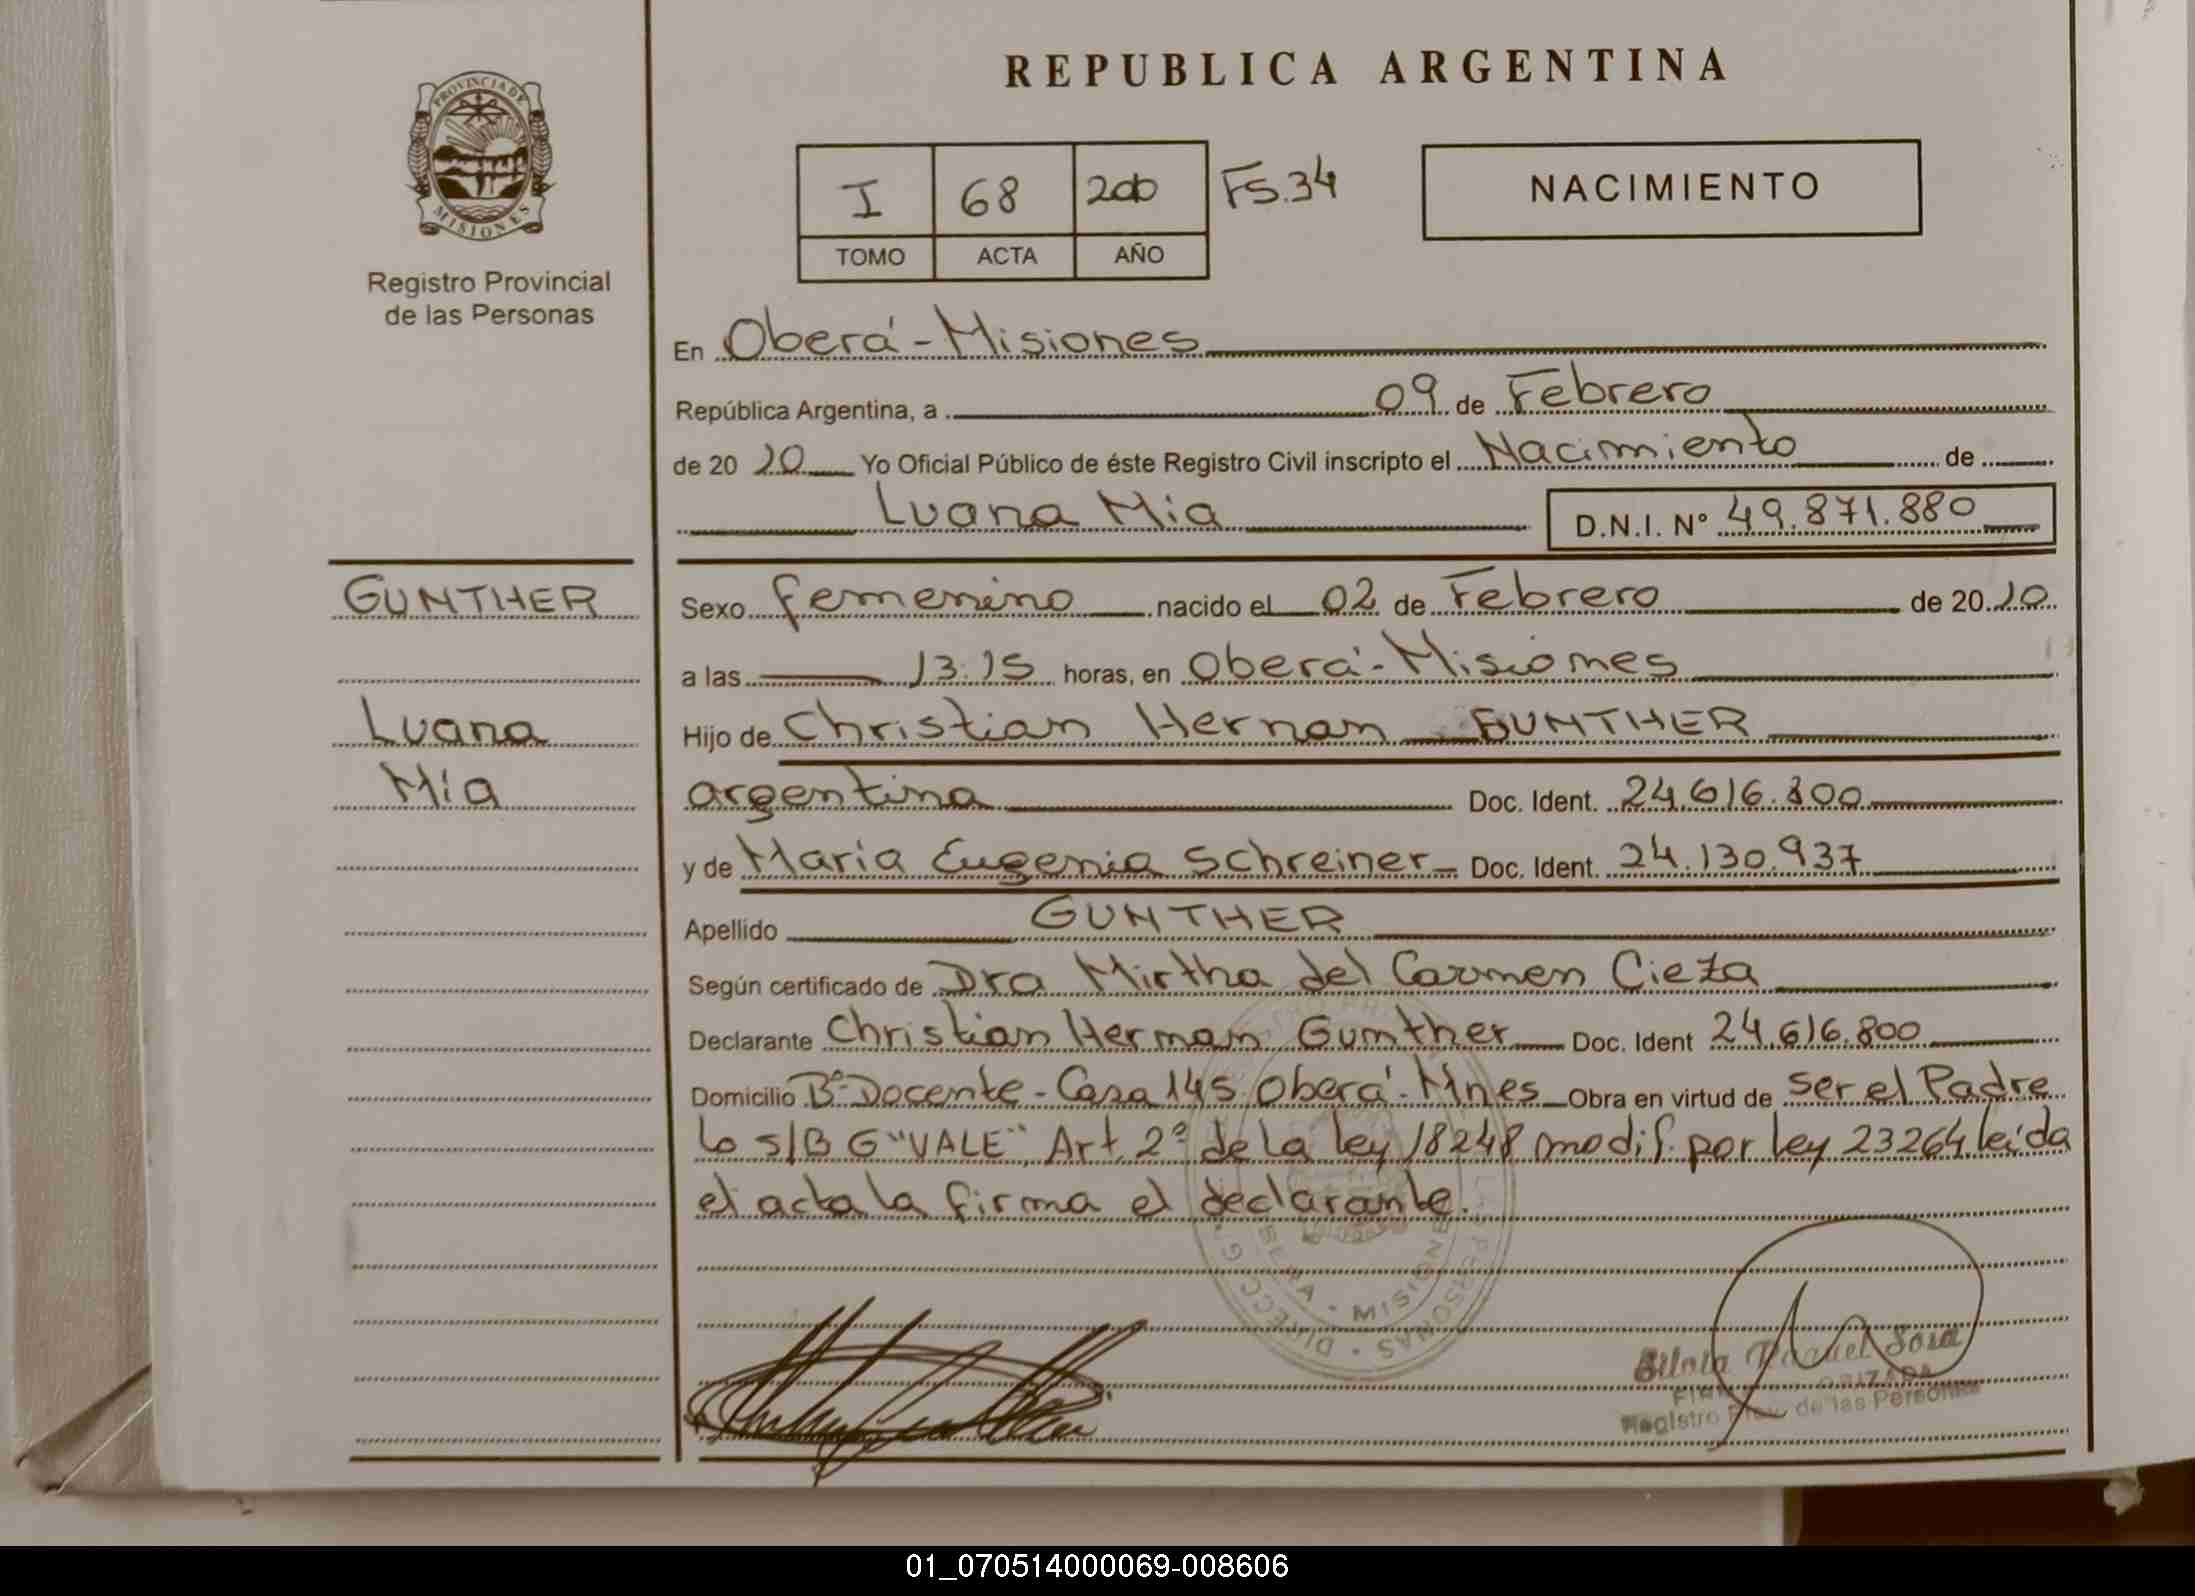 REPUBLICA ARGENTINA
PROVINCIA DE
MISIONES
Registro Provincial
de las Personas
I 68 FS.34
TOMO ACTA AÑO
NACIMIENTO
En Oberá - Misiones
República Argentina, a 09 de Febrero
de 20 10 Yo Oficial Público de éste Registro Civil inscripto el Nacimiento de
Luana Mia D.N.I. Nº 49.871.880
GUNTHER
Luana
Mía
Sexo femenino nacido el 02 de Febrero de 20 10
a las 13:15 horas, en Oberá - Misiones
Hijo de Christian Hernan GUNTHER
argentina Doc. Ident. 24.616.800
y de María Eugenia Schreiner Doc. Ident. 24.130.937
Apellido GUNTHER
Según certificado de Dra Mirtha del Carmen Cieza
Declarante Christian Hernan Gunther Doc. Ident 24.616.800
Domicilio Bº Docente - Casa 145 Oberá - Mnes Obra en virtud de ser el Padre
Lo s/B G "VALE" Art. 2º de la ley 18248 modif. por ley 23264 leída
el acta la firma el declarante.
MISIONES
Registro Prov. de las Personas
01_070514000069-008606